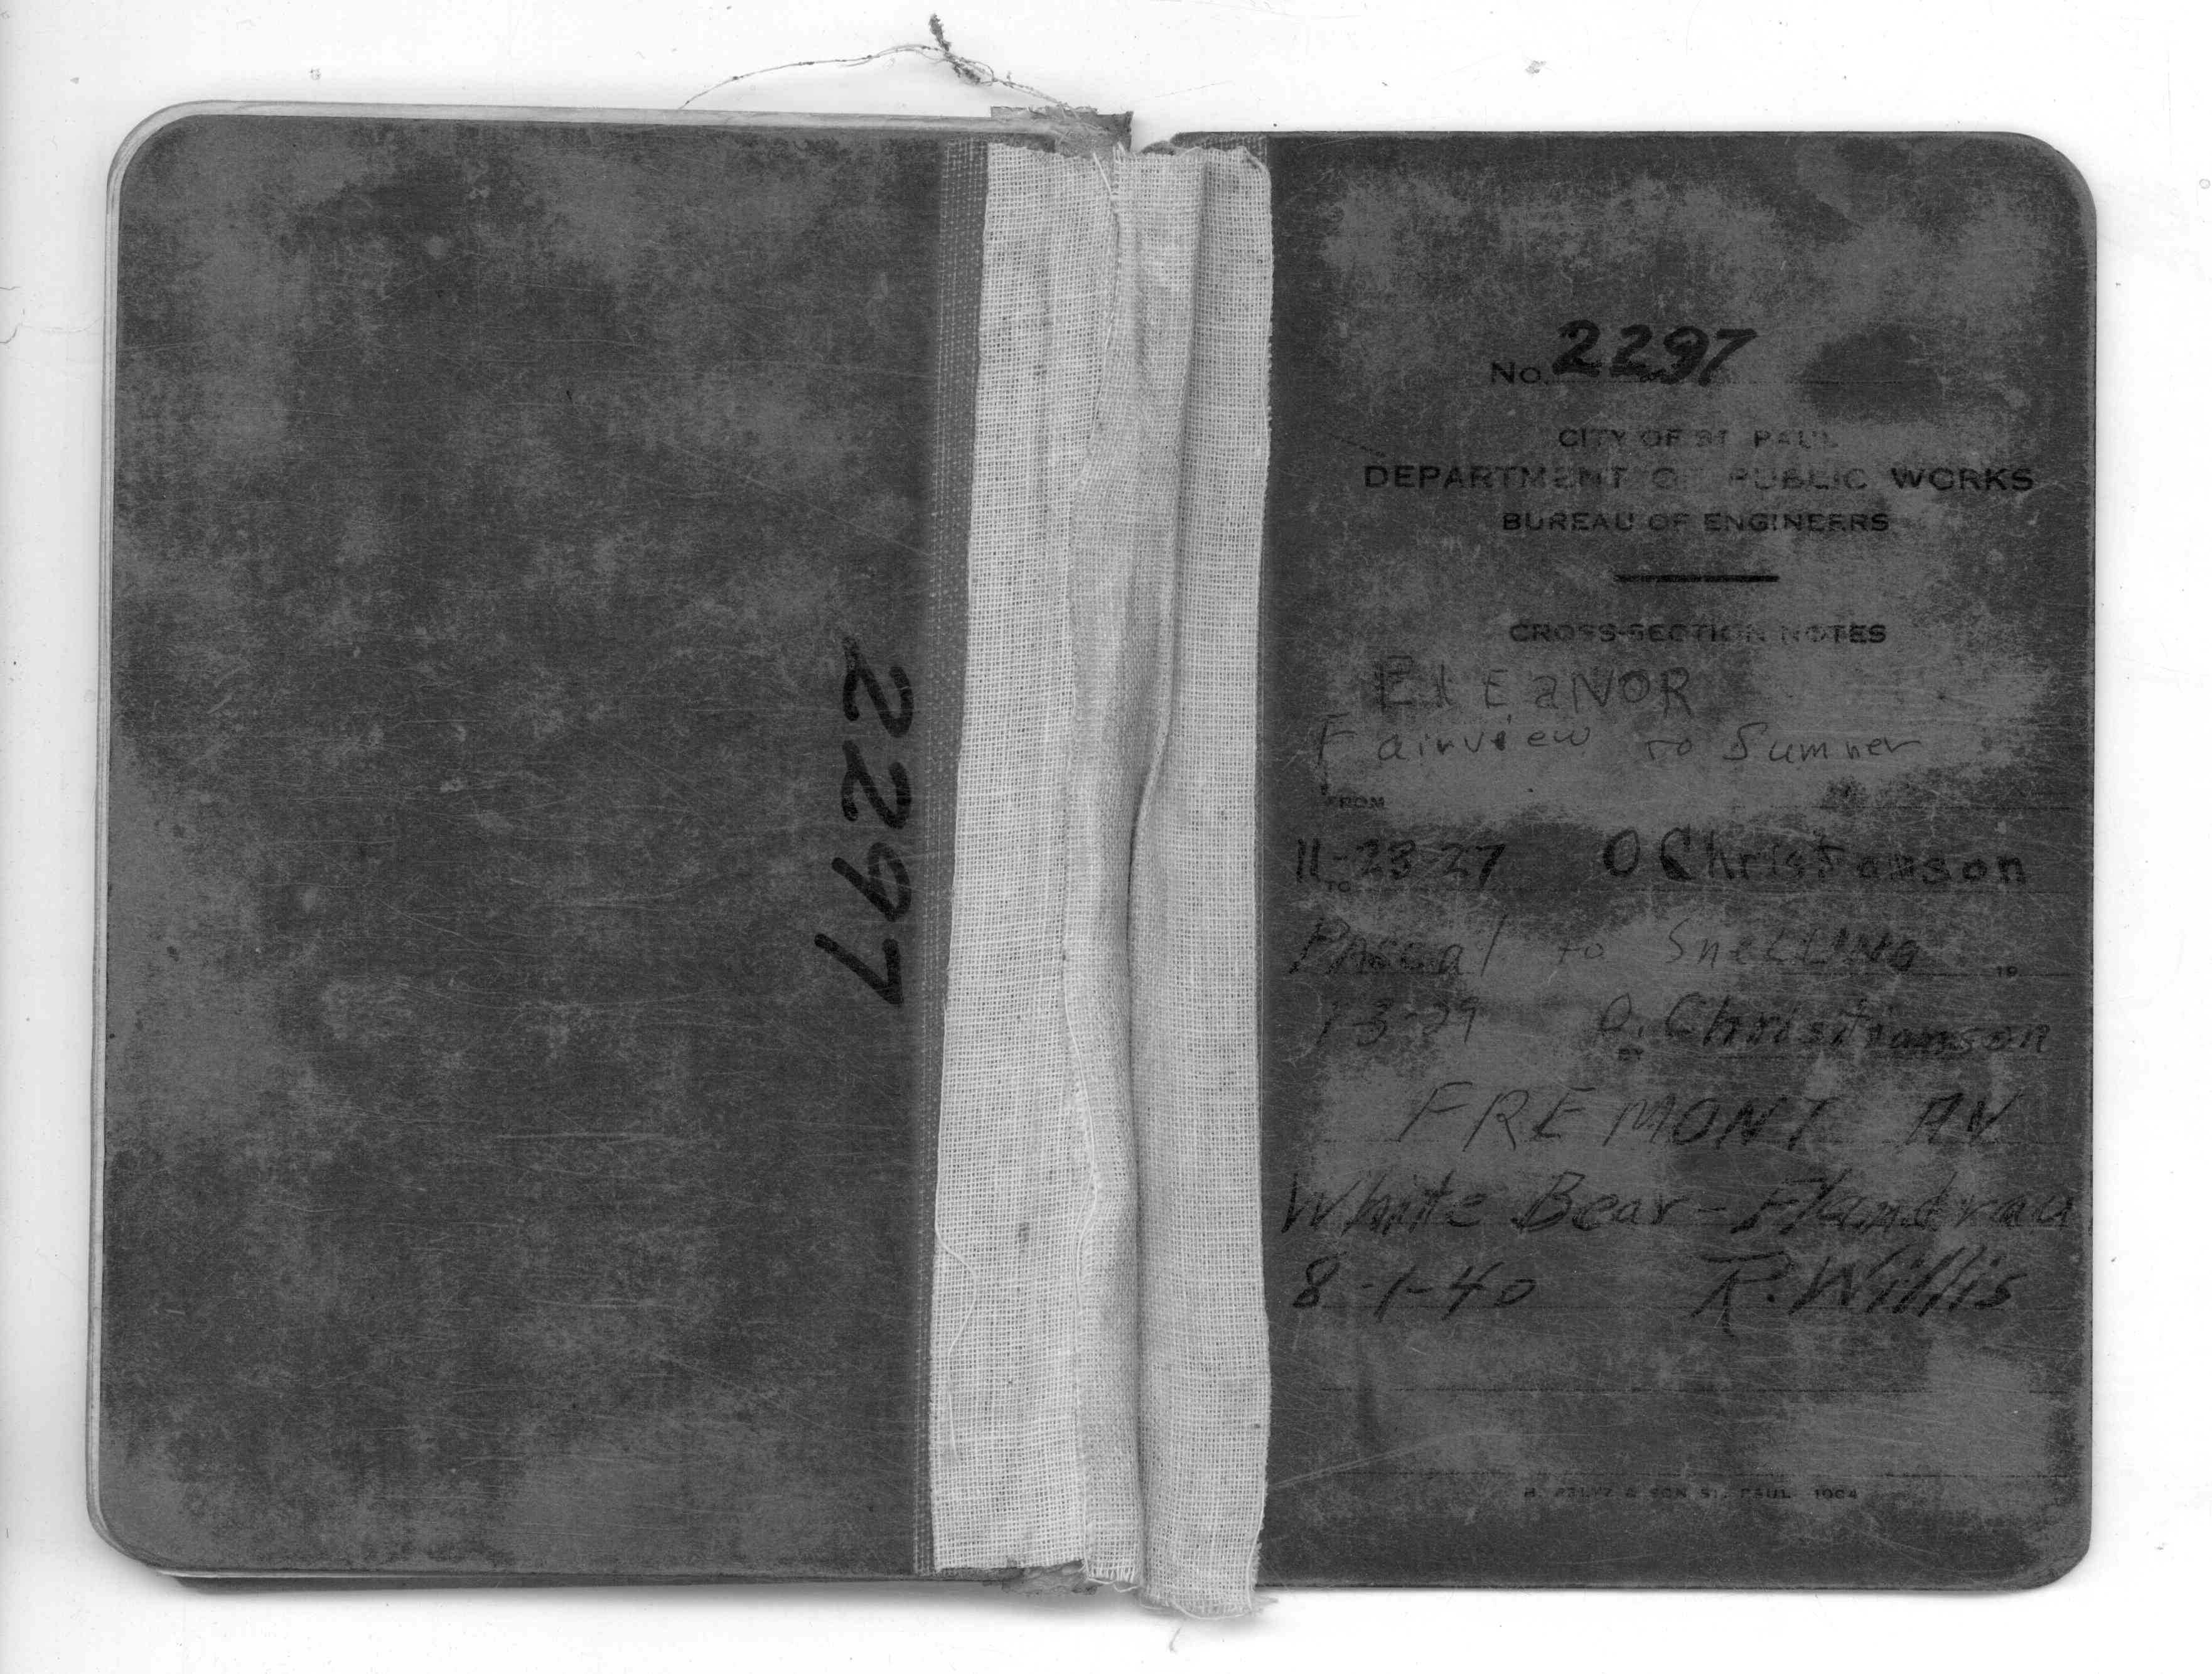 2297
No. 2297
CITY OF ST. PAUL
DEPARTMENT OF PUBLIC WORKS
BUREAU OF ENGINEERS
CROSS-SECTION NOTES
ElEaNOR
Fairview to Sumner
FROM
11-23-27 O Christianson
TO
Pascal to SneLLING
TO
1-3-29 O. Christianson
FREMONT AV
White Bear - Flandrau
8-1-40 R. Willis
& SON ST. PAUL